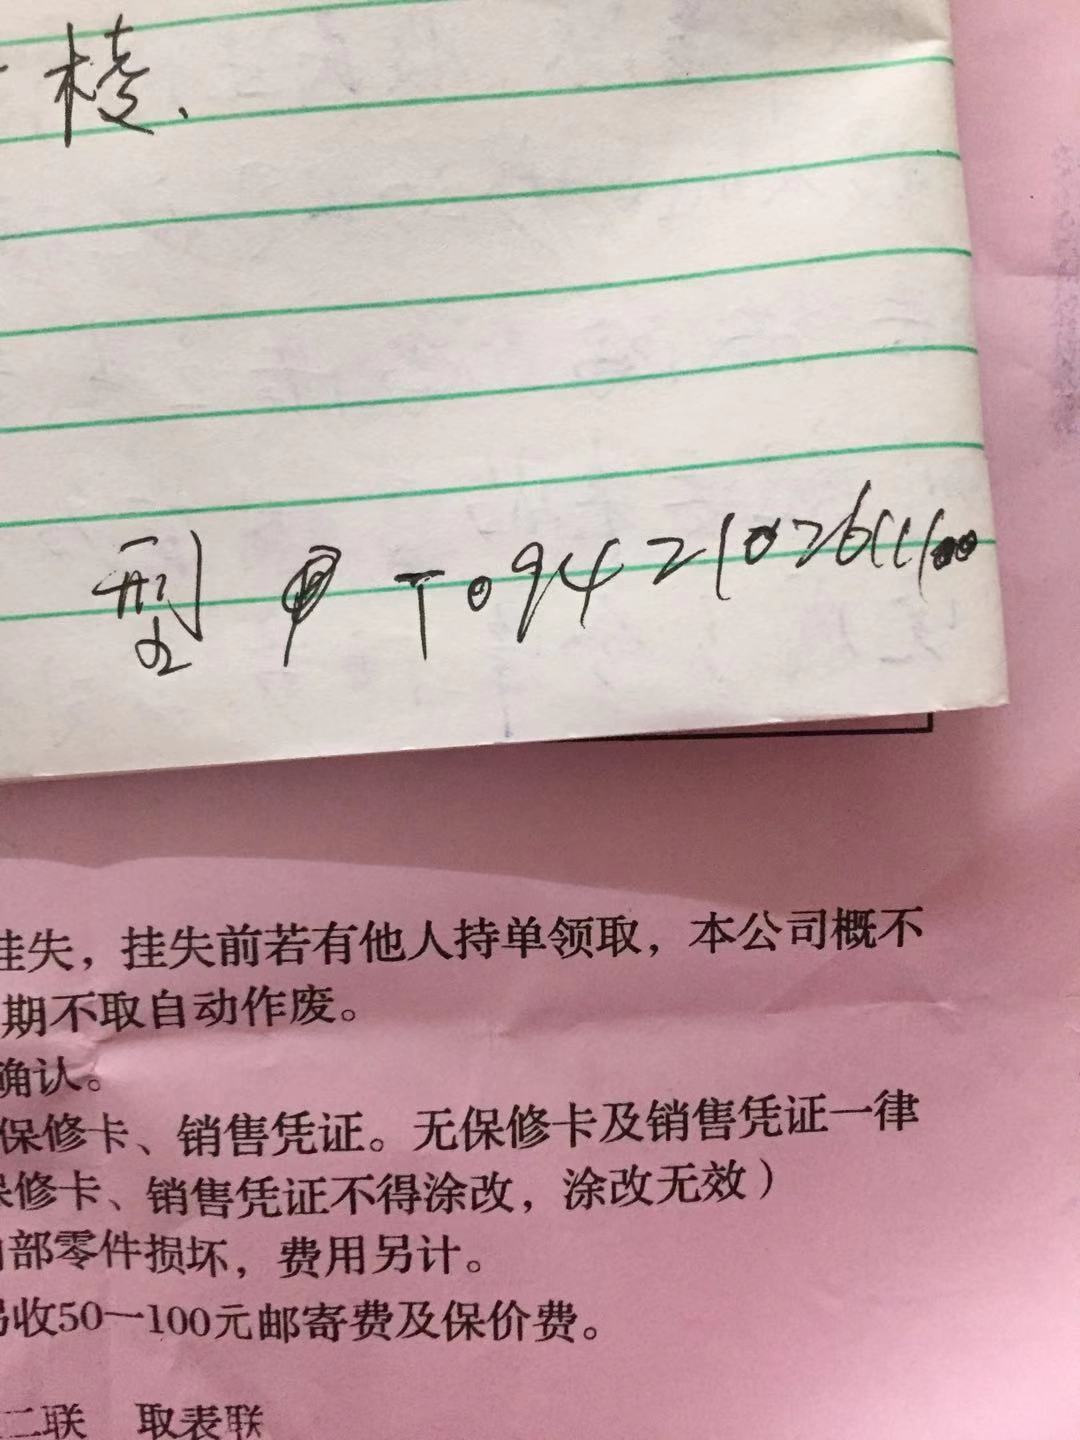 棱.
型 T0942102611100
挂失，挂失前若有他人持单领取，本公司概不
期不取自动作废。
确认。
保修卡、销售凭证。无保修卡及销售凭证一律
保修卡、销售凭证不得涂改，涂改无效）
内部零件损坏，费用另计。
收50一100元邮寄费及保价费。
二联 取表联